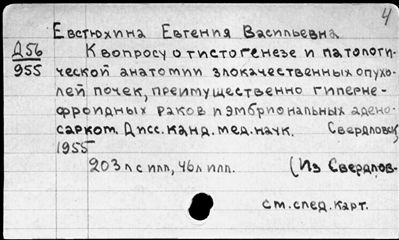 4
Евстюхина Евгения Васильевна
Д56
955
К вопросу о гистогенезе и патологи-
ческой анатомии злокачественных опухо-
лей почек, преимущественно гиперне-
фроидных раков и эмбриональных адено-
сарком. Дисс. канд. мед. наук. Свердловск,
1955
203 л с илл, 46 л илл. (Из Свердлов-
См. спед. карт.